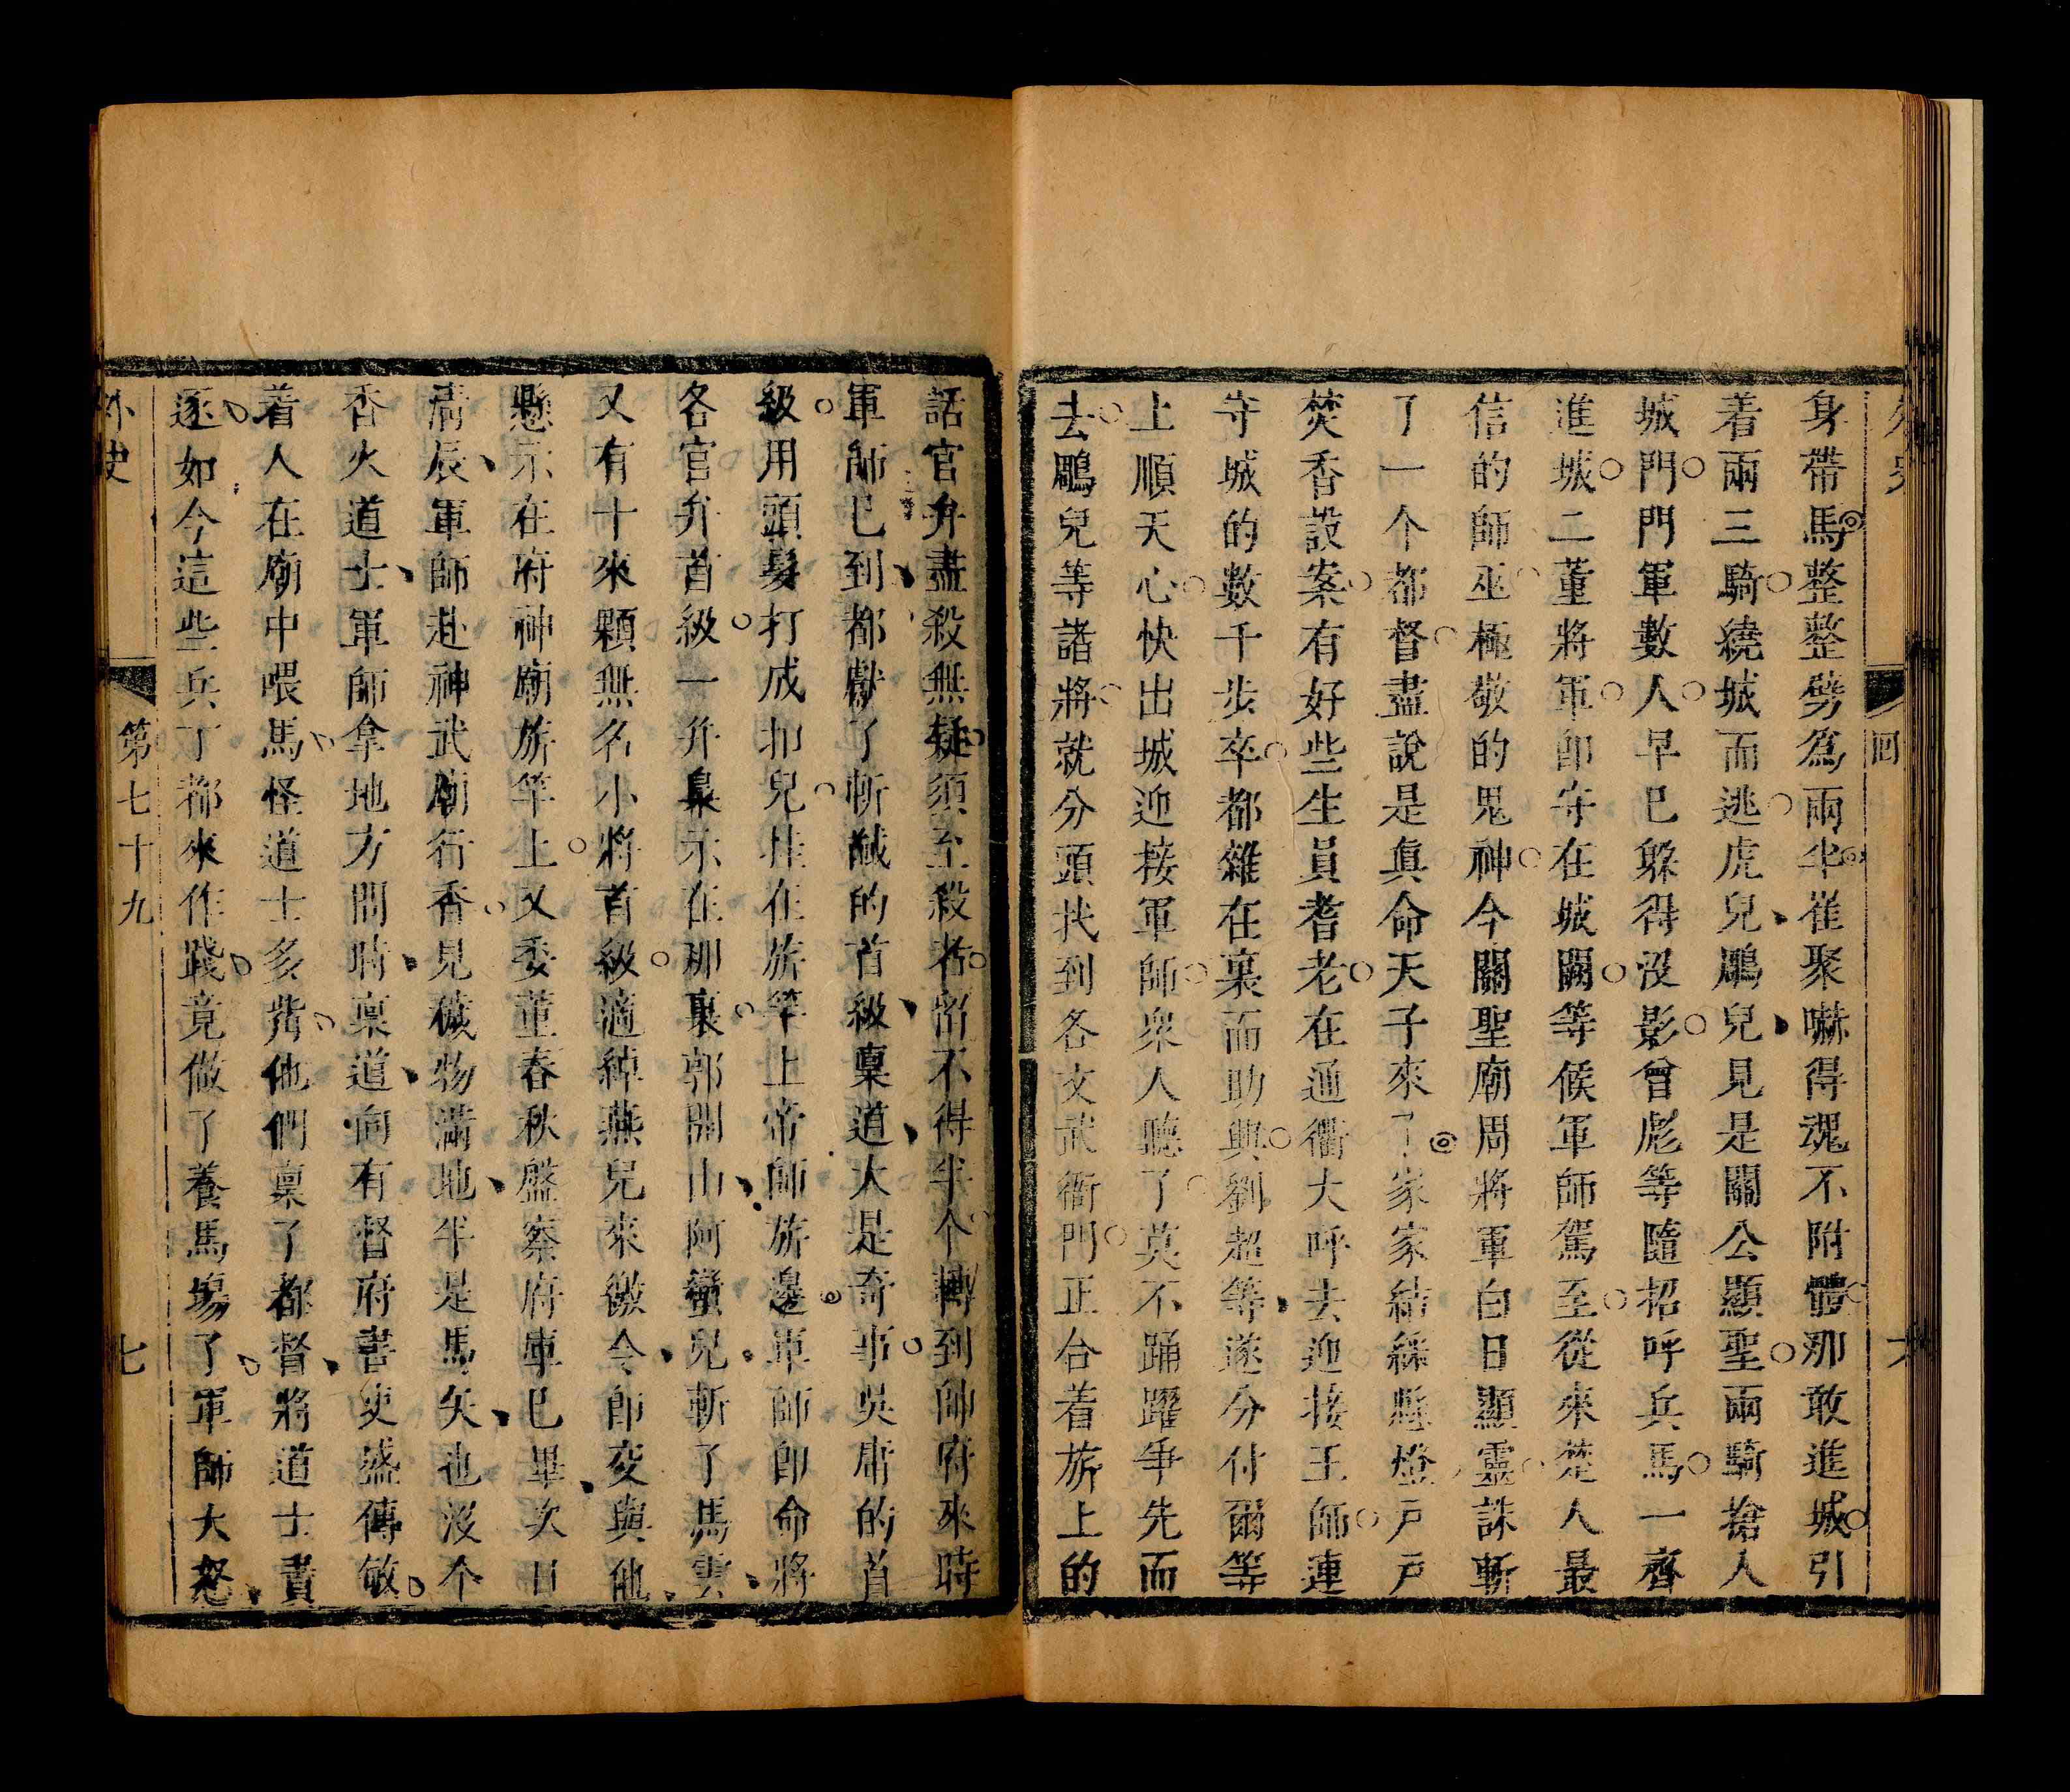 外史
回
六
身帶馬整整劈為兩半崔聚嚇得魂不附體那敢進城引
着兩三騎繞城而逃虎兒鵰兒見是關公顯聖兩騎搶入
城門門軍數人早已躲得沒影曾彪等隨招呼兵馬一齊
進城二董將軍即守在城闕等候軍師駕至從來楚人最
信的師巫極敬的鬼神今關聖廟周將軍白日顯靈誅斬
了一个都督盡說是真命天子來了家家結綵懸燈戶戶
焚香設案有好些生員耆老在通衢大呼去迎接王師連
守城的數千步卒都雜在裏而助興劉超等遂分付爾等
上順天心快出城迎接軍師眾人聽了莫不踊躍爭先而
去鵰兒等諸將就分頭找到各文武衙門正合着旂上的
話官弁盡殺無疑須至殺者留不得半个轉到帥府來時
軍師已到都獻了斬馘的首級稟道大是奇事吳庸的首
級用頭髮打成扣兒挂在旂竿上帝師旂邊軍師即命將
各官弁首級一并梟示在那裏郭開山阿蠻兒斬了馬雲
又有十來顆無名小將首級適綽燕兒來繳令即交與他
懸示在府神廟旂竿上又委董春秋盤察府庫已畢次日
清辰軍師赴神武廟行香見穢物滿地半是馬矢也沒个
香火道士軍師拿地方問時稟道向有督府書吏盛傳敏
着人在廟中喂馬怪道士多嘴他們稟了都督將道士責
逐如今這些兵丁都來作踐竟做了養馬塲了軍師大怒
外史
第七十九
七